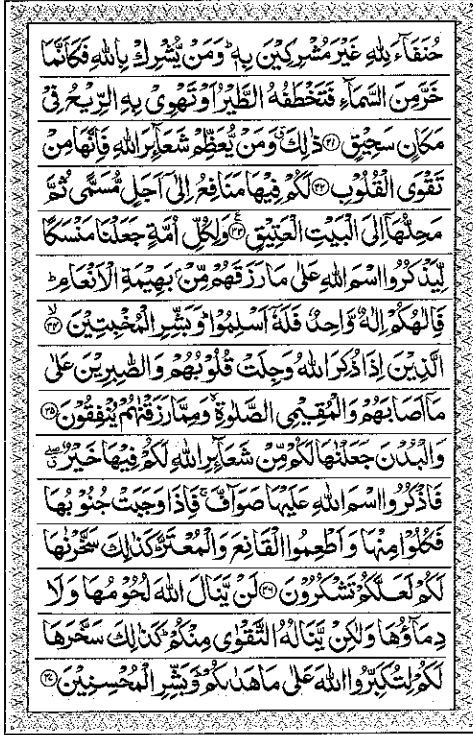 حُنَفَآءَ لِلّٰهِ غَيۡرَ مُشۡرِكِيۡنَ بِهٖ‌ؕ وَمَنۡ يُّشۡرِكۡ بِاللّٰهِ فَكَاَنَّمَا
خَرَّ مِنَ السَّمَآءِ فَتَخۡطَفُهُ الطَّيۡرُ اَوۡ تَهۡوِىۡ بِهِ الرِّيۡحُ فِىۡ
مَكَانٍ سَحِيۡقٍ ﴿۳۱﴾ ذٰلِكَ وَمَنۡ يُّعَظِّمۡ شَعَآئِرَ اللّٰهِ فَاِنَّهَا مِنۡ
تَقۡوَى الۡقُلُوۡبِ ﴿۳۲﴾ لَكُمۡ فِيۡهَا مَنَافِعُ اِلٰٓى اَجَلٍ مُّسَمًّى ثُمَّ
مَحِلُّهَاۤ اِلَى الۡبَيۡتِ الۡعَتِيۡقِ ﴿۳۳﴾ وَلِكُلِّ اُمَّةٍ جَعَلۡنَا مَنۡسَكًا
لِّيَذۡكُرُوا اسۡمَ اللّٰهِ عَلٰى مَا رَزَقَهُمۡ مِّنۡۢ بَهِيۡمَةِ الۡاَنۡعَامِ‌ؕ
فَاِلٰهُكُمۡ اِلٰهٌ وَّاحِدٌ فَلَهٗۤ اَسۡلِمُوۡا‌ؕ وَبَشِّرِ الۡمُخۡبِتِيۡنَ ۙ‏﴿۳۴﴾
الَّذِيۡنَ اِذَا ذُكِرَ اللّٰهُ وَجِلَتۡ قُلُوۡبُهُمۡ وَالصّٰبِرِيۡنَ عَلٰى
مَاۤ اَصَابَهُمۡ وَالۡمُقِيۡمِى الصَّلٰوةِ ۙ وَمِمَّا رَزَقۡنٰهُمۡ يُنۡفِقُوۡنَ ﴿۳۵﴾
وَالۡبُدۡنَ جَعَلۡنٰهَا لَكُمۡ مِّنۡ شَعَآئِرِ اللّٰهِ لَكُمۡ فِيۡهَا خَيۡرٌ‌ ‌ۖ
فَاذۡكُرُوا اسۡمَ اللّٰهِ عَلَيۡهَا صَوَآفَّ‌ ۚ فَاِذَا وَجَبَتۡ جُنُوۡبُهَا
فَكُلُوۡا مِنۡهَا وَاَطۡعِمُوا الۡقَانِعَ وَالۡمُعۡتَرَّ ‌ؕ كَذٰلِكَ سَخَّرۡنٰهَا
لَكُمۡ لَعَلَّكُمۡ تَشۡكُرُوۡنَ ﴿۳۶﴾ لَنۡ يَّنَالَ اللّٰهَ لُحُوۡمُهَا وَلَا
دِمَآؤُهَا وَلٰكِنۡ يَّنَالُهُ التَّقۡوٰى مِنۡكُمۡ‌ؕ كَذٰلِكَ سَخَّرَهَا
لَكُمۡ لِتُكَبِّرُوا اللّٰهَ عَلٰى مَا هَدٰٮكُمۡ‌ؕ وَبَشِّرِ الۡمُحۡسِنِيۡنَ ﴿۳۷﴾